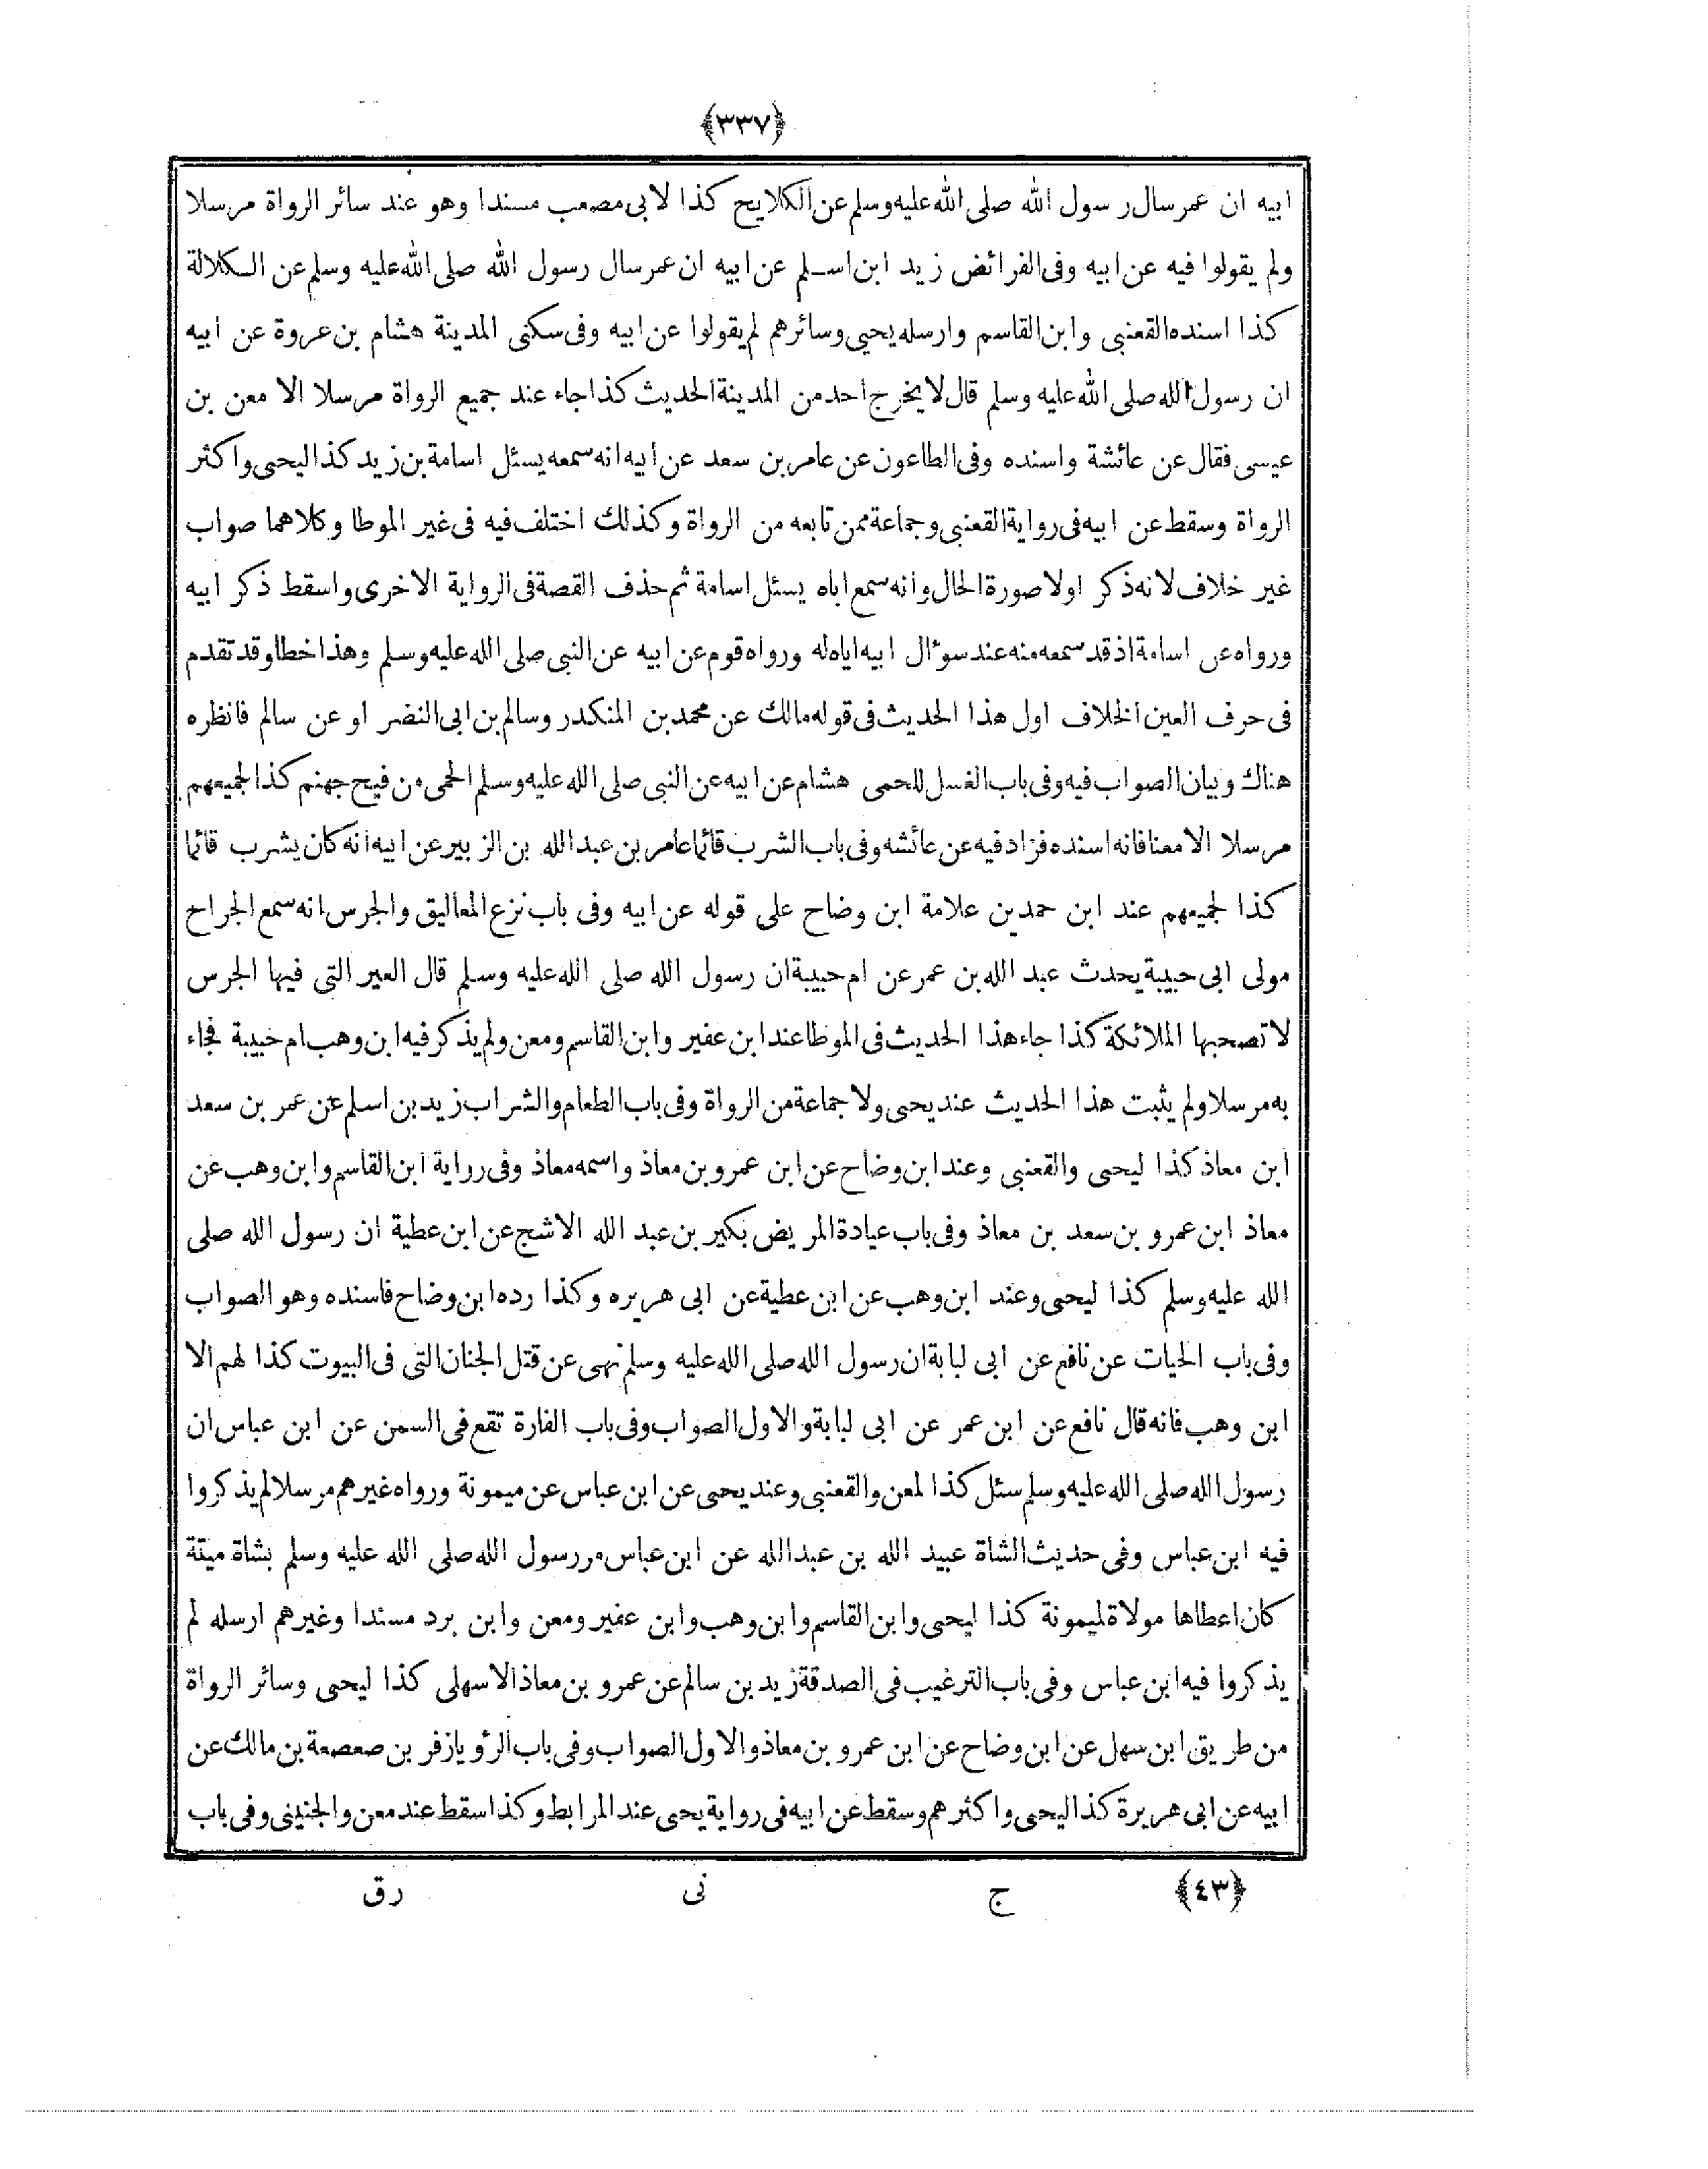 ﴿٣٣٧﴾
ابيه ان عمر سال رسول الله صلى الله عليه وسلم عن الكلايح كذا لابى مصعب مسندا وهو عند سائر الرواة مرسلا
ولم يقولوا فيه عن ابيه وفى الفرائض زيد ابن اسلم عن ابيه ان عمر سال رسول الله صلى الله عليه وسلم عن الكلالة
كذا اسنده القعنبى وابن القاسم وارسله يحيى وسائرهم لم يقولوا عن ابيه وفى سكنى المدينة هشام بن عروة عن ابيه
ان رسول الله صلى الله عليه وسلم قال لا يخرج احد من المدينة الحديث كذا جاء عند جميع الرواة مرسلا الا معن بن
عيسى فقال عن عائشة واسنده وفى الطاعون عن عامر بن سعد عن ابيه انه سمعه يسئل اسامة بن زيد كذا ليحيى واكثر
الرواة وسقط عن ابيه فى رواية القعنبى وجماعة ممن تابعه من الرواة وكذلك اختلف فيه فى غير الموطا وكلاهما صواب
غير خلاف لانه ذكر اولا صورة الحال وانه سمع اباه يسئل اسامة ثم حذف القصة فى الرواية الاخرى واسقط ذكر ابيه
ورواه عن اسامة اذ قد سمعه منه عند سوءال ابيه اياه له ورواه قوم عن ابيه عن النبى صلى الله عليه وسلم وهذا خطا وقد تقدم
فى حرف العين الخلاف اول هذا الحديث فى قوله مالك عن محمد بن المنكدر وسالم بن ابى النضر او عن سالم فانظره
هناك وبيان الصواب فيه وفى باب الغسل للحمى هشام عن ابيه عن النبى صلى الله عليه وسلم الحمى من فيح جهنم كذا لجميعهم
مرسلا الا معنا فانه اسنده فزاد فيه عن عائشه وفى باب الشرب قائما عامر بن عبد الله بن الزبير عن ابيه انه كان يشرب قائما
كذا لجميعهم عند ابن حمدين علامة ابن وضاح على قوله عن ابيه وفى باب نزع المعاليق والجرس انه سمع الجراح
مولى ابى حبيبة يحدث عبد الله بن عمر عن ام حبيبة ان رسول الله صلى الله عليه وسلم قال العير التى فيها الجرس
لا تصحبها الملائكة كذا جاء هذا الحديث فى الموطا عند ابن عفير وابن القاسم ومعن ولم يذكر فيه ابن وهب ام حبيبة فجاء
به مرسلا ولم يثبت هذا الحديث عند يحيى ولا جماعة من الرواة وفى باب الطعام والشراب زيد بن اسلم عن عمر بن سعد
ابن معاذ كذا ليحيى والقعنبى وعند ابن وضاح عن ابن عمرو بن معاذ واسمه معاذ وفى رواية ابن القاسم وابن وهب عن
معاذ ابن عمرو بن سعد بن معاذ وفى باب عيادة المريض بكير بن عبد الله الاشج عن ابن عطية ان رسول الله صلى
الله عليه وسلم كذا ليحيى وعند ابن وهب عن ابن عطية عن ابى هريره وكذا رده ابن وضاح فاسنده وهو الصواب
وفى باب الحيات عن نافع عن ابى لبابة ان رسول الله صلى الله عليه وسلم نهى عن قتل الجنان التى فى البيوت كذا لهم الا
ابن وهب فانه قال نافع عن ابن عمر عن ابى لبابة والاول الصواب وفى باب الفارة تقع فى السمن عن ابن عباس ان
رسول الله صلى الله عليه وسلم سئل كذا لمعن والقعنبى وعند يحيى عن ابن عباس عن ميمونة ورواه غيرهم مرسلا لم يذكروا
فيه ابن عباس وفى حديث الشاة عبيد الله بن عبد الله عن ابن عباس مر رسول الله صلى الله عليه وسلم بشاة ميتة
كان اعطاها مولاة لميمونة كذا ليحيى وابن القاسم وابن وهب وابن عفير ومعن وابن برد مسندا وغيرهم ارسله لم
يذكروا فيه ابن عباس وفى باب الترغيب فى الصدقة زيد بن سالم عن عمرو بن معاذ الاسهلى كذا ليحيى وسائر الرواة
من طريق ابن سهل عن ابن وضاح عن ابن عمرو بن معاذ والاول الصواب وفى باب الرؤيا زفر بن صعصعة بن مالك عن
ابيه عن ابى هريرة كذا ليحيى واكثرهم وسقط عن ابيه فى رواية يحيى عند المرابط وكذا سقط عند معن والجنينى وفى باب
﴿٤٣﴾ ج نى رق